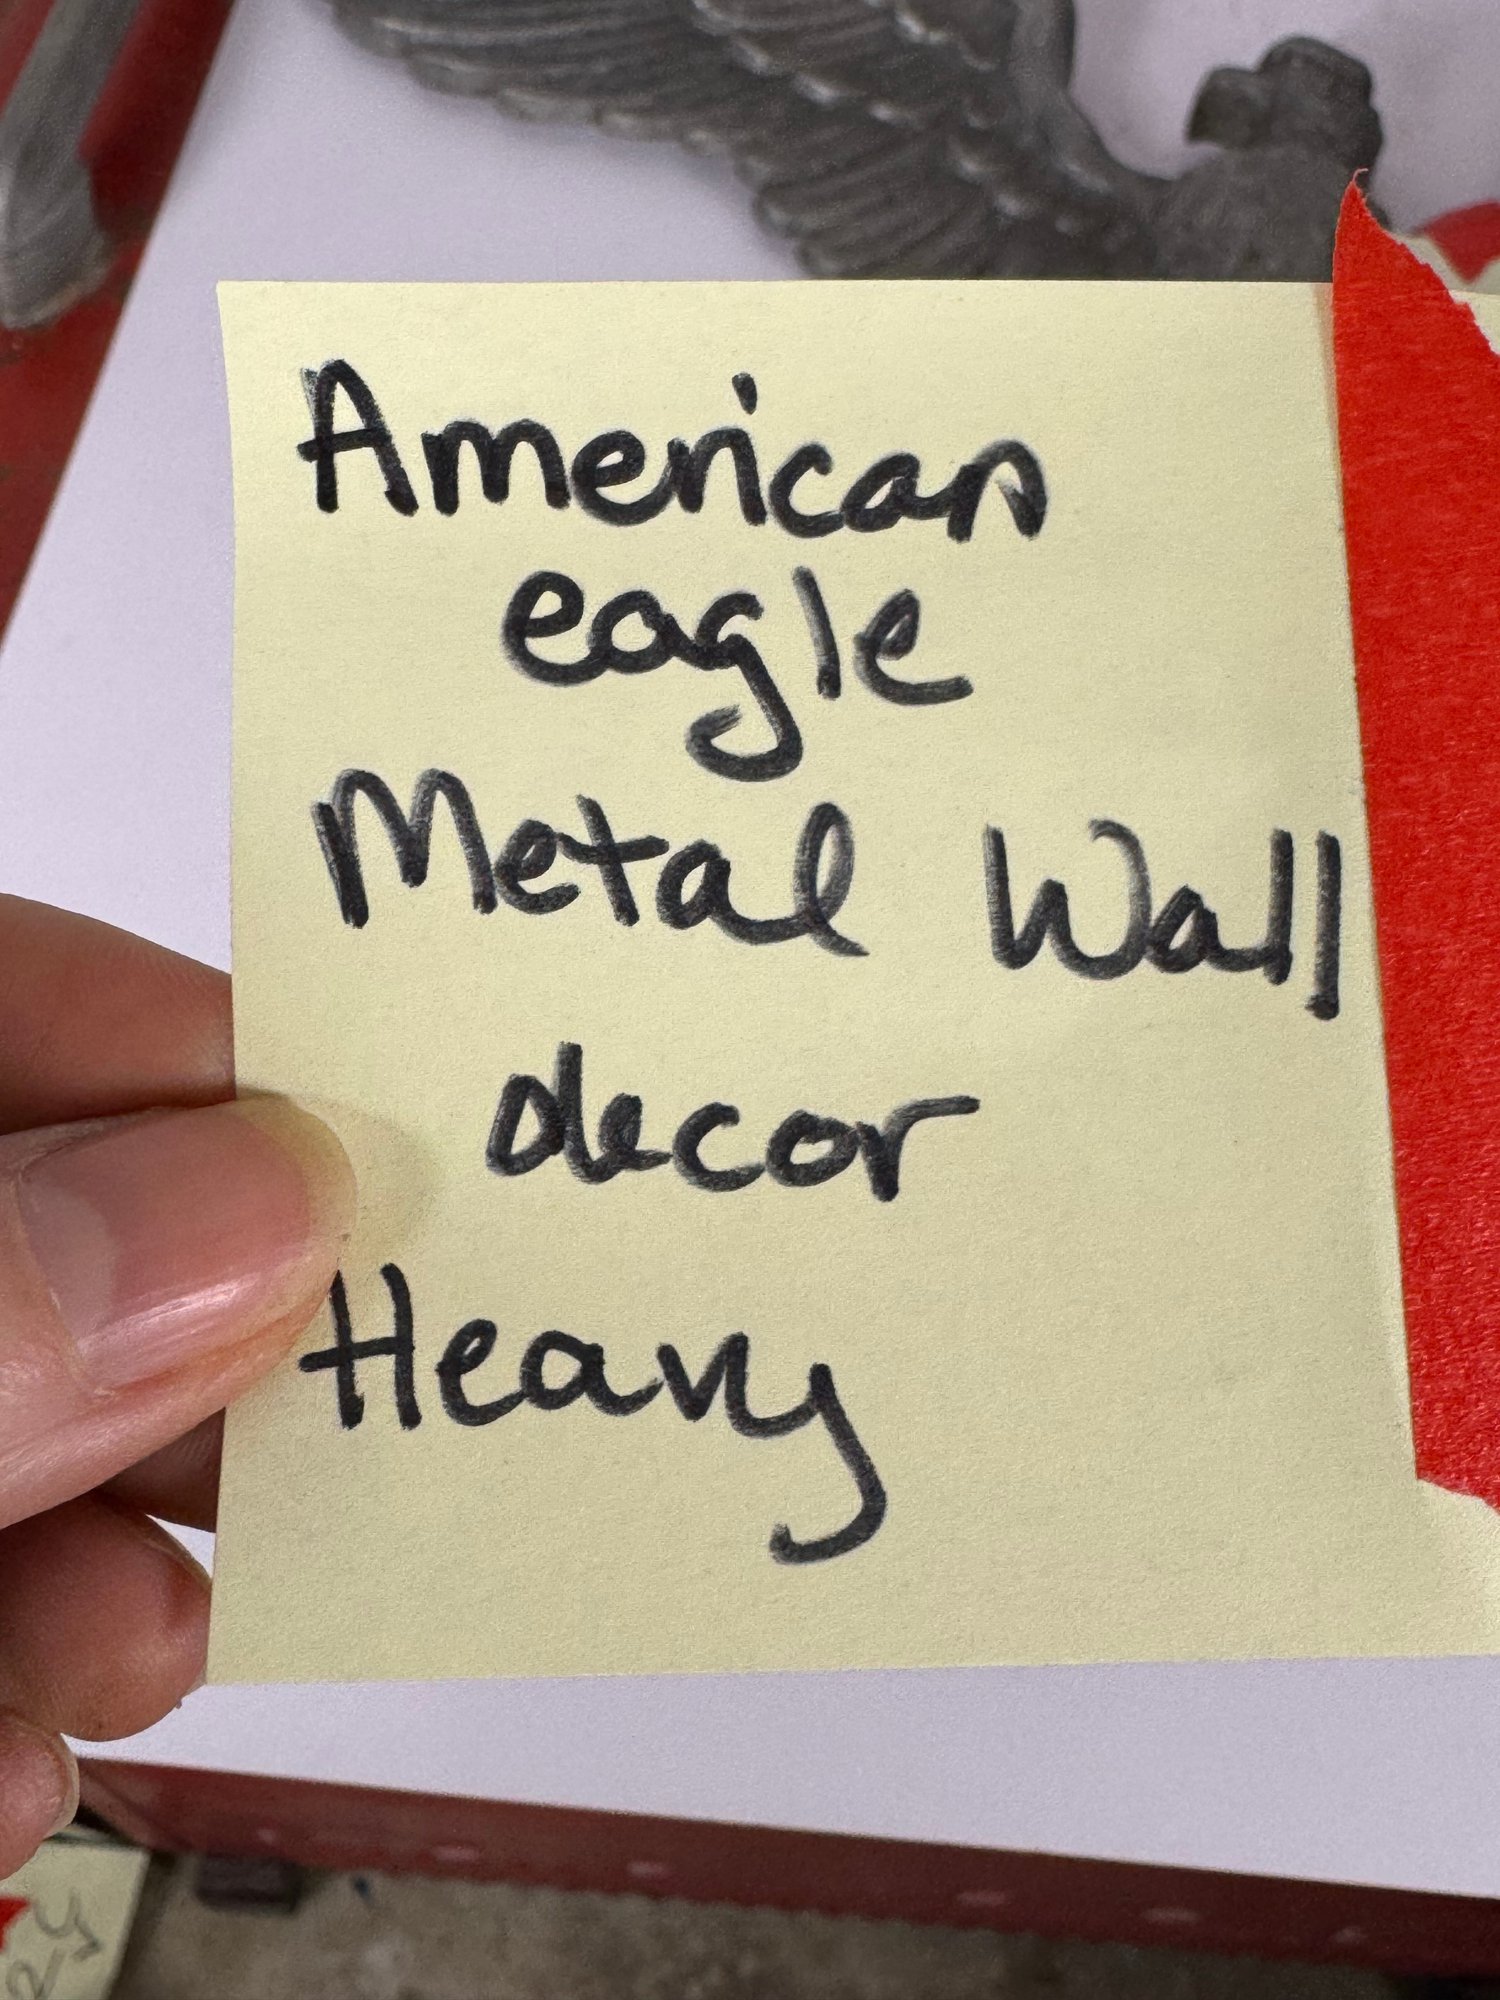 American
eagle
Metal Wall
decor
Heavy